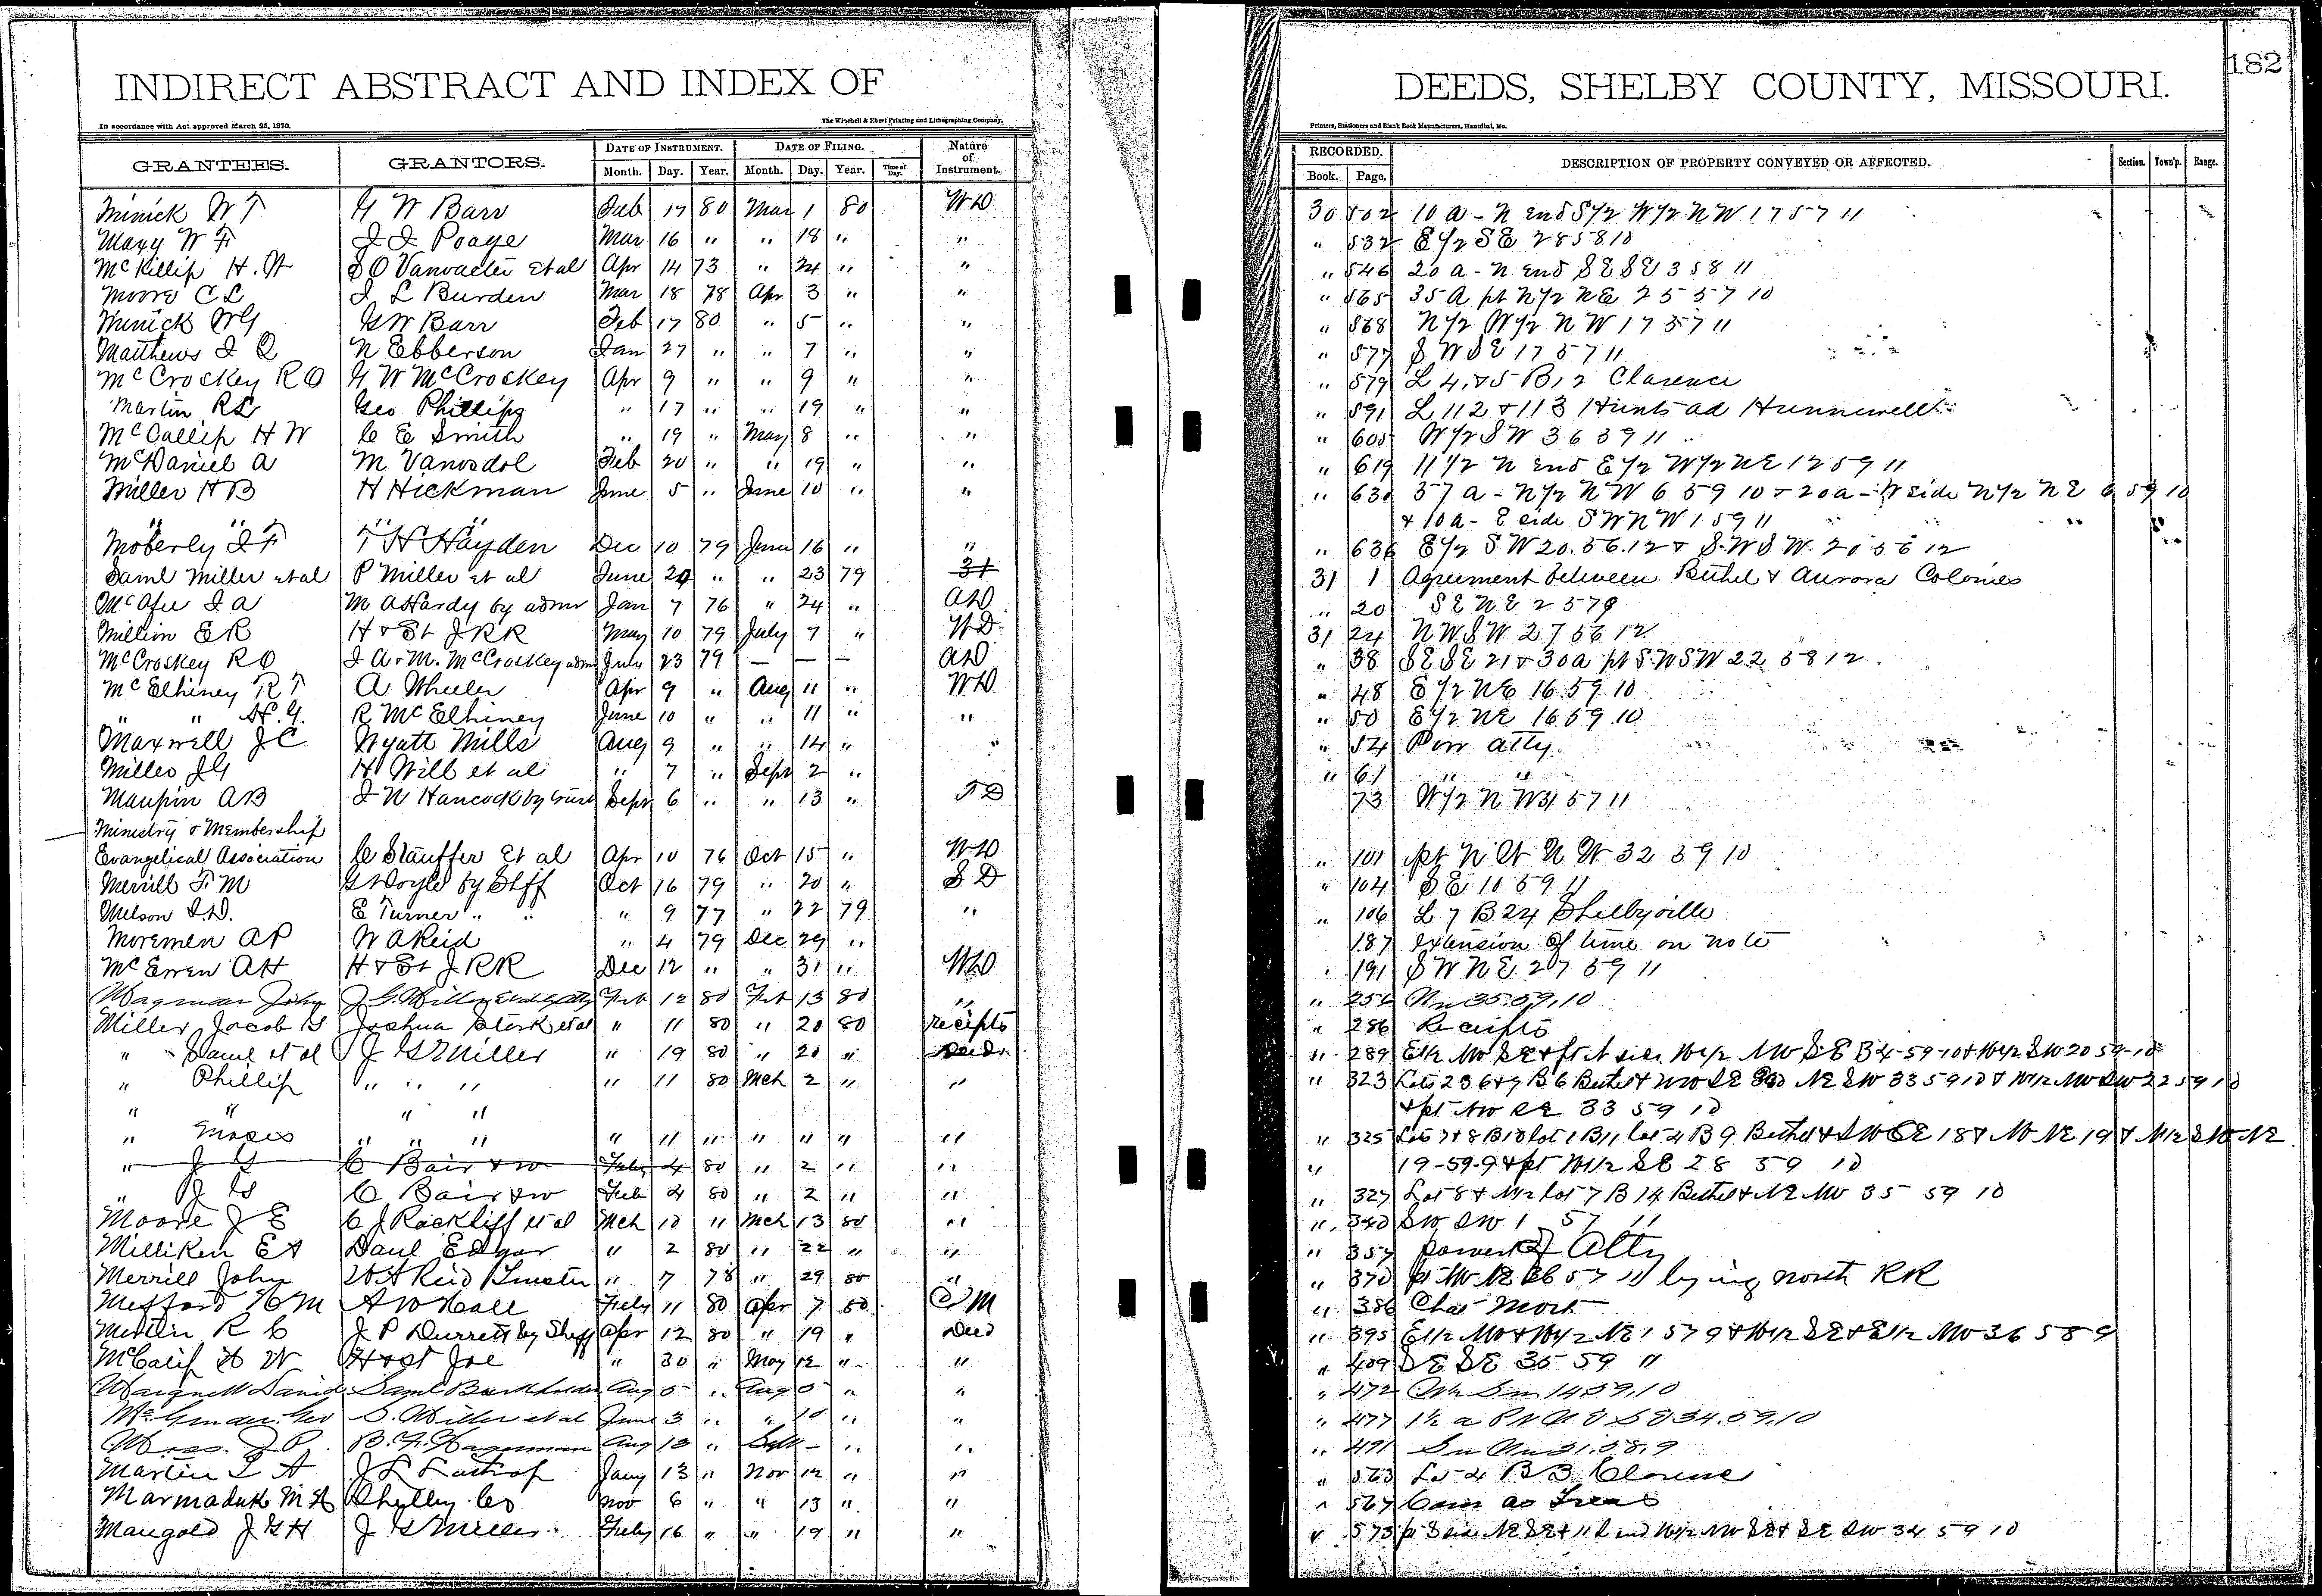 182
INDIRECT ABSTRACT AND INDEX OF DEEDS, SHELBY COUNTY, MISSOURI.
In accordance with Act approved March 25, 1870. The Winchell & Ebert Printing and Lithographing Company, Printers, Stationers and Blank Book Manufacturers, Hannibal, Mo.
GRANTEES. GRANTORS. DATE OF INSTRUMENT. DATE OF FILING. Nature of Instrument. RECORDED. DESCRIPTION OF PROPERTY CONVEYED OR AFFECTED. Section. Town'p. Range.
Month. Day. Year. Month. Day. Year. Time of Day. Book. Page.
Minick W T G W Barr Feb 17 80 Mar 1 80 WD 30 502 10 a - N end S 1/2 W 1/2 NW 17 57 11
Maxy W F J I Poage Mar 16 " " 18 " " " 532 E 1/2 SE 28 58 10
McKillip H. W S O Vanvacter et al Apr 14 73 " 24 " " " 546 20 a - N end SE SE 3 58 11
Moore C L J L Burden Mar 18 78 Apr 3 " " " 565 35 A pt N 1/2 NE 25 57 10
Minick WG GW Barr Feb 17 80 " 5 " " " 568 N 1/2 W 1/2 NW 17 57 11
Matthews J Q N Ebberson Jan 27 " " 7 " " " 577 SW SE 17 57 11
McCroskey R O G W McCroskey Apr 9 " " 9 " " " 579 L 4, & 5 B 12 Clarence
Martin RL Geo Phillips " 17 " " 19 " " " 591 L 112 & 113 Hunts ad Hunnewell
McCallip H W C E Smith " 19 " May 8 " " " 605 W 1/2 SW 36 59 11
McDaniel A M Vanosdol Feb 20 " " 19 " " " 619 11 1/2 N end E 1/2 W 1/2 NE 12 59 11
Miller H B H Hickman June 5 " June 10 " " " 630 37 a - N 1/2 NW 6 59 10 & 20 a - W side N 1/2 NE 6 59 10
" " " " & 10 a - E side SW NW 1 59 11
Moberly J F T H Hayden Dec 10 79 June 16 " " " 636 E 1/2 SW 20.56.12 & SW SW 20 56 12
Saml Miller et al P Miller et al June 20 " " 23 79 31 1 Agreement between Bethel & Aurora Colonies
McAfee J A M A Hardy by admr Jan 7 76 " 24 " AD " 20 SE NE 2 57 9
Million E R H & St J RR May 10 79 July 7 " WD 31 24 NW SW 27 56 12
McCroskey R O J A & M. McCroskey adm July 23 79 — — — AD " 38 SE SE 21 & 30 a pt SW SW 22 58 12
McElhiney R T A Wheeler Apr 9 " Aug 11 " WD " 48 E 1/2 NE 16.59.10
" " H. G. R McElhiney June 10 " " 11 " " " 50 E 1/2 NE 16 59.10
Maxwell J C Wyatt Mills Aug 9 " " 14 " " " 54 Pow atty.
Miller JG H Will et al " 7 " Sept 2 " " 61 " "
Maupin A B J N Hancock by trust Sept 6 " " 13 " TD 73 W 1/2 N W 31 57 11
Ministry & Membership
Evangelical Association C Stauffer et al Apr 10 76 Oct 15 " WD " 101 pt N W N W 32 59 10
Merrill F M G W Doyle by Shff Oct 16 79 " 20 " SD " 104 SE 10 59 11
Melson J. D. E Turner " " " 9 77 " 22 79 " " 106 L 7 B 24 Shelbyville
Moremen A P W A Reid " 4 79 Dec 29 " 187 extension of time on note
McEwen A H H & St J RR Dec 12 " " 31 " WD " 191 SW NE 27 59 11
Wagman John Feb 12 80 Feb 13 80 " " 256 Nw 35.59.10
Miller Jacob G Joshua Stork et al " 11 80 " 20 80 receipts " 286 Receipts
" Saml et al J G Miller " 19 80 " 20 " Deed " 289
" Phillip " " " " 11 80 Mch 2 " " " 323
" " " " & pt NW SE 33 59 10
" Moses " " " " 11 " " " " " " 325
" J G C Bair & w Feby 4 80 " 2 " " " 19-59-9 & pt W 1/2 SE 28 59 10
" J G C Bair & w Feb 4 80 " 2 " " " 327 Lot 8 & N 1/2 lot 7 B 14 Bethel & NE NW 35 59 10
Moore J E C J Rackliff et al Mch 10 " Mch 13 80 " " 340 SW SW 1 57 11
Milliken E A Danl Edgar " 2 80 " 22 " " " 357 power of Atty
Merrill John W A Reid Trustee " 7 78 " 29 80 " " 370 pt NW NE 36 57 11 lying north RR
Mefford H M A W Hall Feby 11 80 Apr 7 80 C M " 386 Chat Mort
Mettlin R C J P Durrett by Shff Apr 12 80 " 19 " Deed " 395 E 1/2 NW & W 1/2 NE 1 57 9 & W 1/2 SE & E 1/2 NW 36 58 9
McCalif H W H & St Joe " 30 " May 12 " " " 409 SE SE 35 59 11
David Saml Burkholder Aug 5 " Aug 5 " " " 472 14.59.10
Geo S. Miller et al June 3 " " 10 " " " 477 34.59.10
Moss. J P. B. F. Hagerman Aug 13 " Sept — " " " 491 Sw Nw 21.58.9
Martin L A J L Lostrof Jany 13 " Nov 12 " " " 563 Lot 4 B 3 Clarence
Marmaduke M A Shelby Co Nov 6 " " 13 " " " 567
Mangold J G H J G Miller Feby 16 " " 19 " " " 573 34 59 10